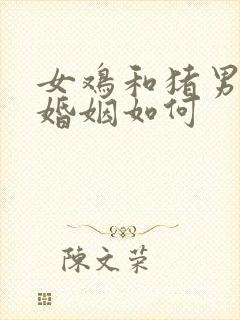 女鸡和猪男
婚姻如何
陳文荣